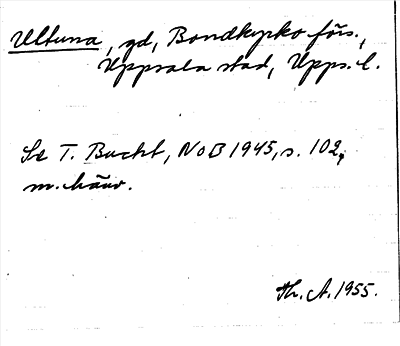 Ultuna, gd, Bondkyrko förs.,
Uppsala stad, Upps. l.
Se T. Bucht, NoB 1945, s. 102,
m. hänv.
Th. A. 1955.